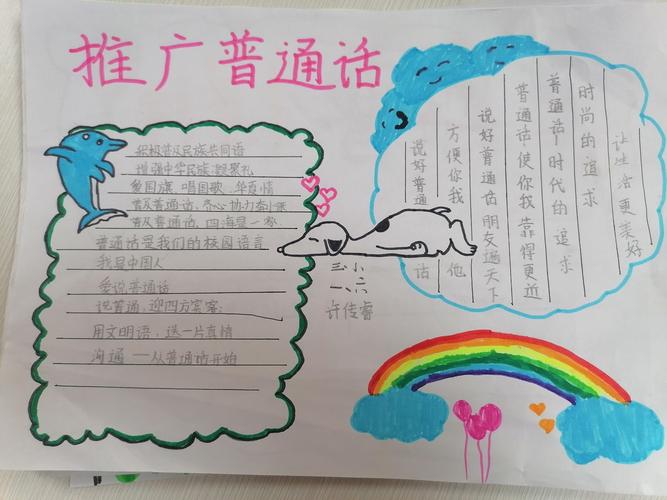 推广普通话
积极普及民族共同语
增强中华民族凝聚礼
爱国旗、唱国歌、
普及普通话、齐心协力
普及普通话、四海是一家
普通话是我们的校园语言
我是中国人
爱说普通话
说普通,迎四方宾客;
用文明语,送一片真情
沟通——从普通话开始
三小
一、六
许传睿
说好普通话
方便你我他
说好普通话 朋友遍天下
普通话,使你我靠得更近
普通话,时代的追求
时尚的追求
让生活更美好